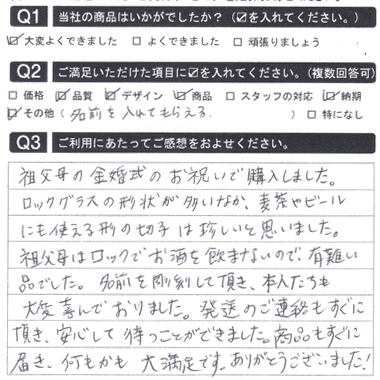 Q1 当社の商品はいかがでしたか？（☑を入れてください。）
☑大変よくできました □よくできました □頑張りましょう
Q2 ご満足いただけた項目に☑を入れてください。（複数回答可）
□価格 ☑品質 ☑デザイン ☑商品 □スタッフの対応 ☑納期
☑その他（名前を入れてもらえる ） □特になし
Q3 ご利用にあたってご感想をおよせください。
祖父母の金婚式のお祝いで購入しました。
ロックグラスの形状が多いなか、麦茶やビール
にも使える形の切子は珍しいと思いました。
祖父母はロックでお酒を飲まないので、有難い
品でした。名前を彫刻して頂き、本人たちも
大変喜んでおりました。発送のご連絡もすぐに
頂き、安心して待つことができました。商品もすぐに
届き、何もかも大満足です。ありがとうございました！